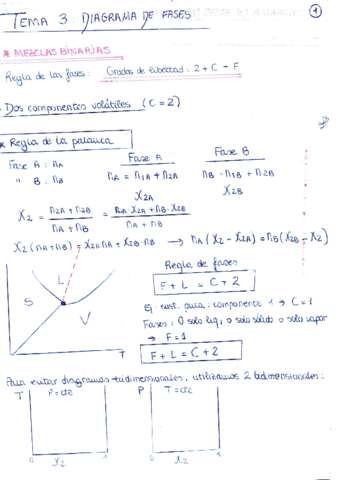 TEMA 3: DIAGRAMA DE FASES
1
* MEZCLAS BINARIAS
Regla de las fases: Grados de libertad: 2 + C - F
- Dos componentes volátiles (C=2)
* Regla de la palanca
Fase A Fase B
Fase A: nA nA = n1A + n2A nB = n1B + n2B
" B: nB X2A X2B
X2 = n2A + n2B / nA + nB = nA·X2A + nB·X2B / nA + nB
X2 (nA + nB) = X2A nA + X2B nB → nA (X2 - X2A) = nB (X2B - X2)
Regla de fases
F + L = C + 2
S L V
T
Ej. sust. pura: componente 1 → C = 1
Fases: 0 solo liq, o solo sólido o solo vapor
→ F = 1
F + L = C + 2
Para evitar diagramas tridimensionales, utilizamos 2 bidimensionales:
T P = cte P T = cte
0 X2 1 0 X2 1